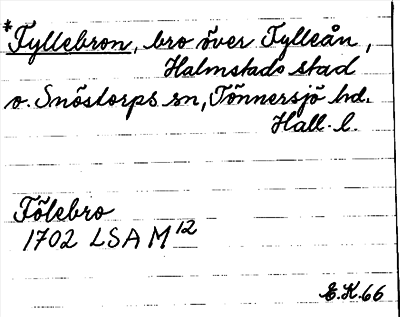 *Fyllebron, bro över Fylleån,
Halmstads stad
o. Snöstorps sn, Tönnersjö hd.
Hall. l.
Fölebro
1702 LSA M 12
E.K. 66